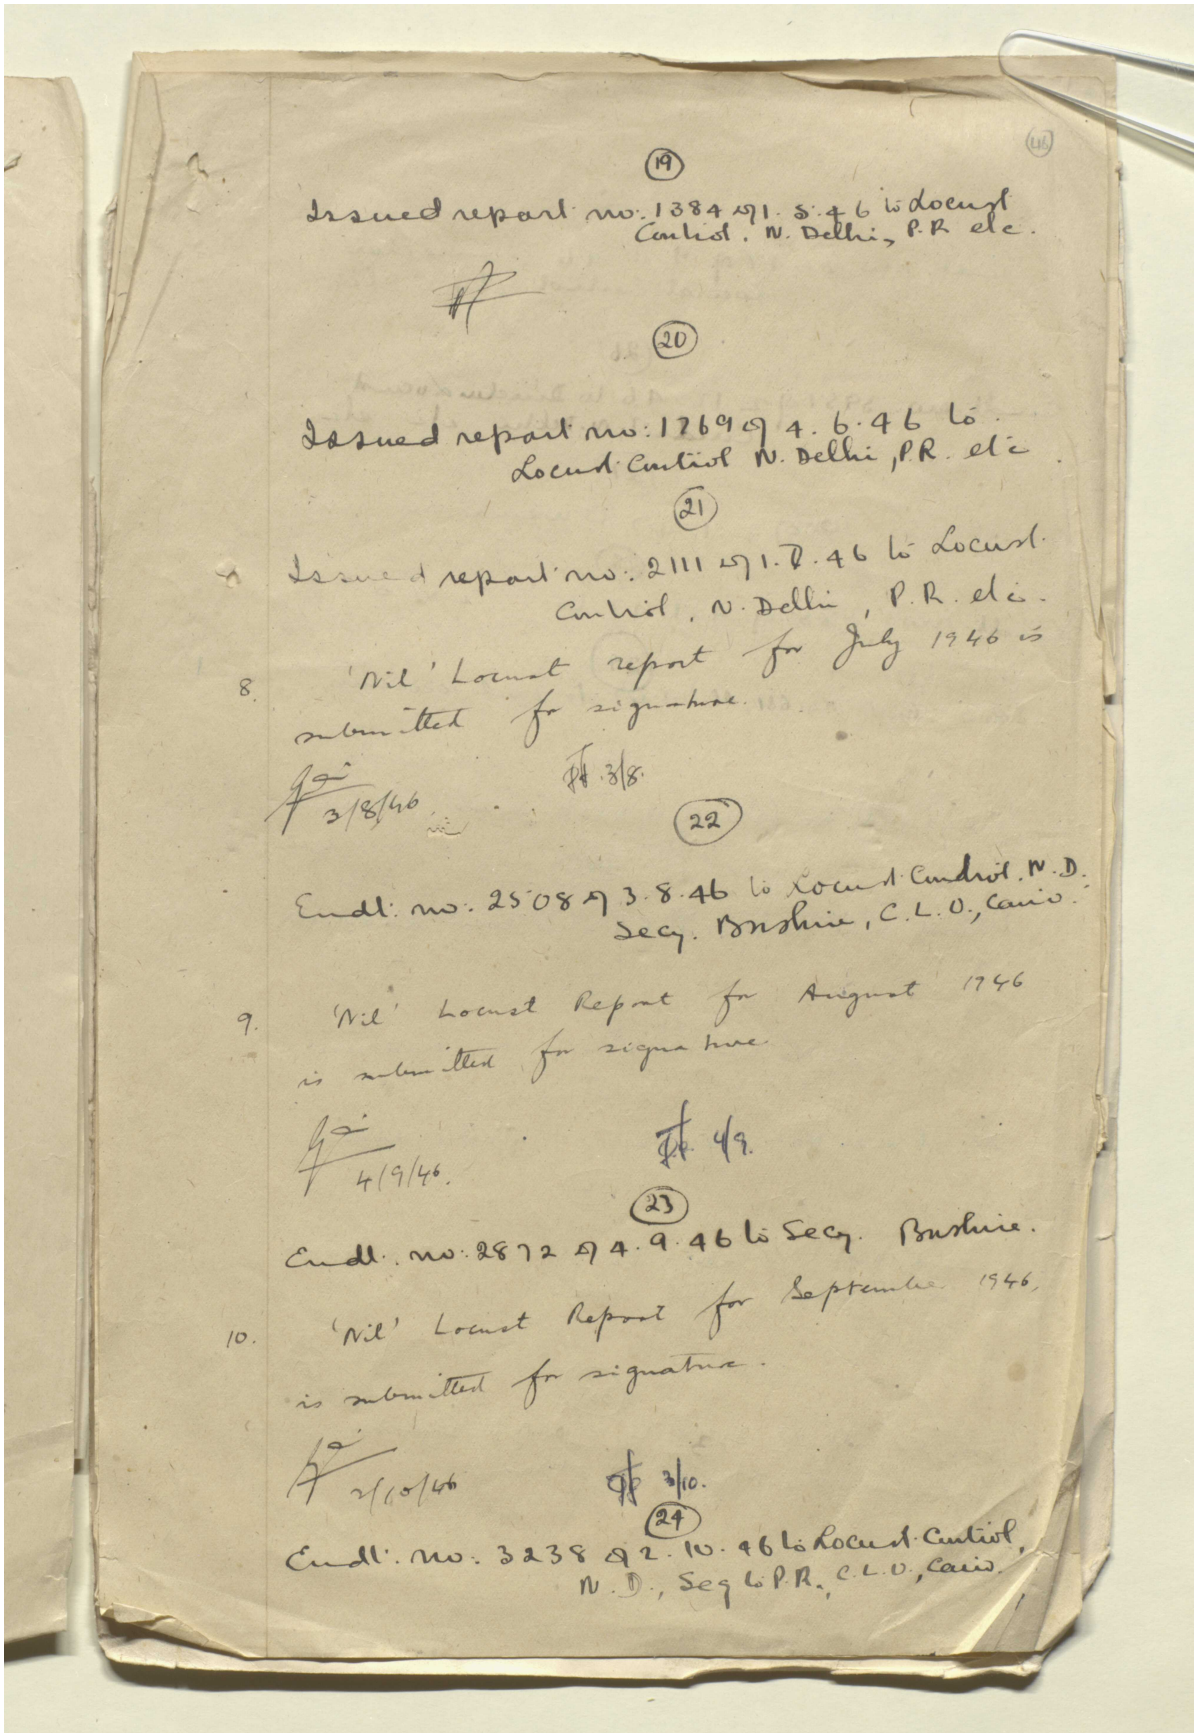 46
19
Issued report no: 1384 of 1.5.46 to Locust
Control. N. Delhi, P.R etc.
20
Issued report no: 1769 of 4.6.46 to
Locust Control N. Delhi, P.R. etc
21
Issued report no: 2111 of 1.7.46 to Locust
Control, N. Delhi, P.R. etc.
8. 'Nil' Locust report for July 1946 is
submitted for signature.
3/8/46 3/8.
22
Endt: no: 2508 of 3.8.46 to Locust Control. N.D.
Secy. Bushire, C.L.O., Cairo.
9. 'Nil' Locust Report for August 1946
is submitted for signature
4/9/46. 4/9.
23
Endt. no: 2872 of 4.9.46 to Secy. Bushire.
10. 'Nil' Locust Report for September 1946,
is submitted for signature.
2/10/46 3/10.
24
Endt. no: 3238 of 2.10.46 to Locust Control,
N.D., Secy to P.R., C.L.O., Cairo.